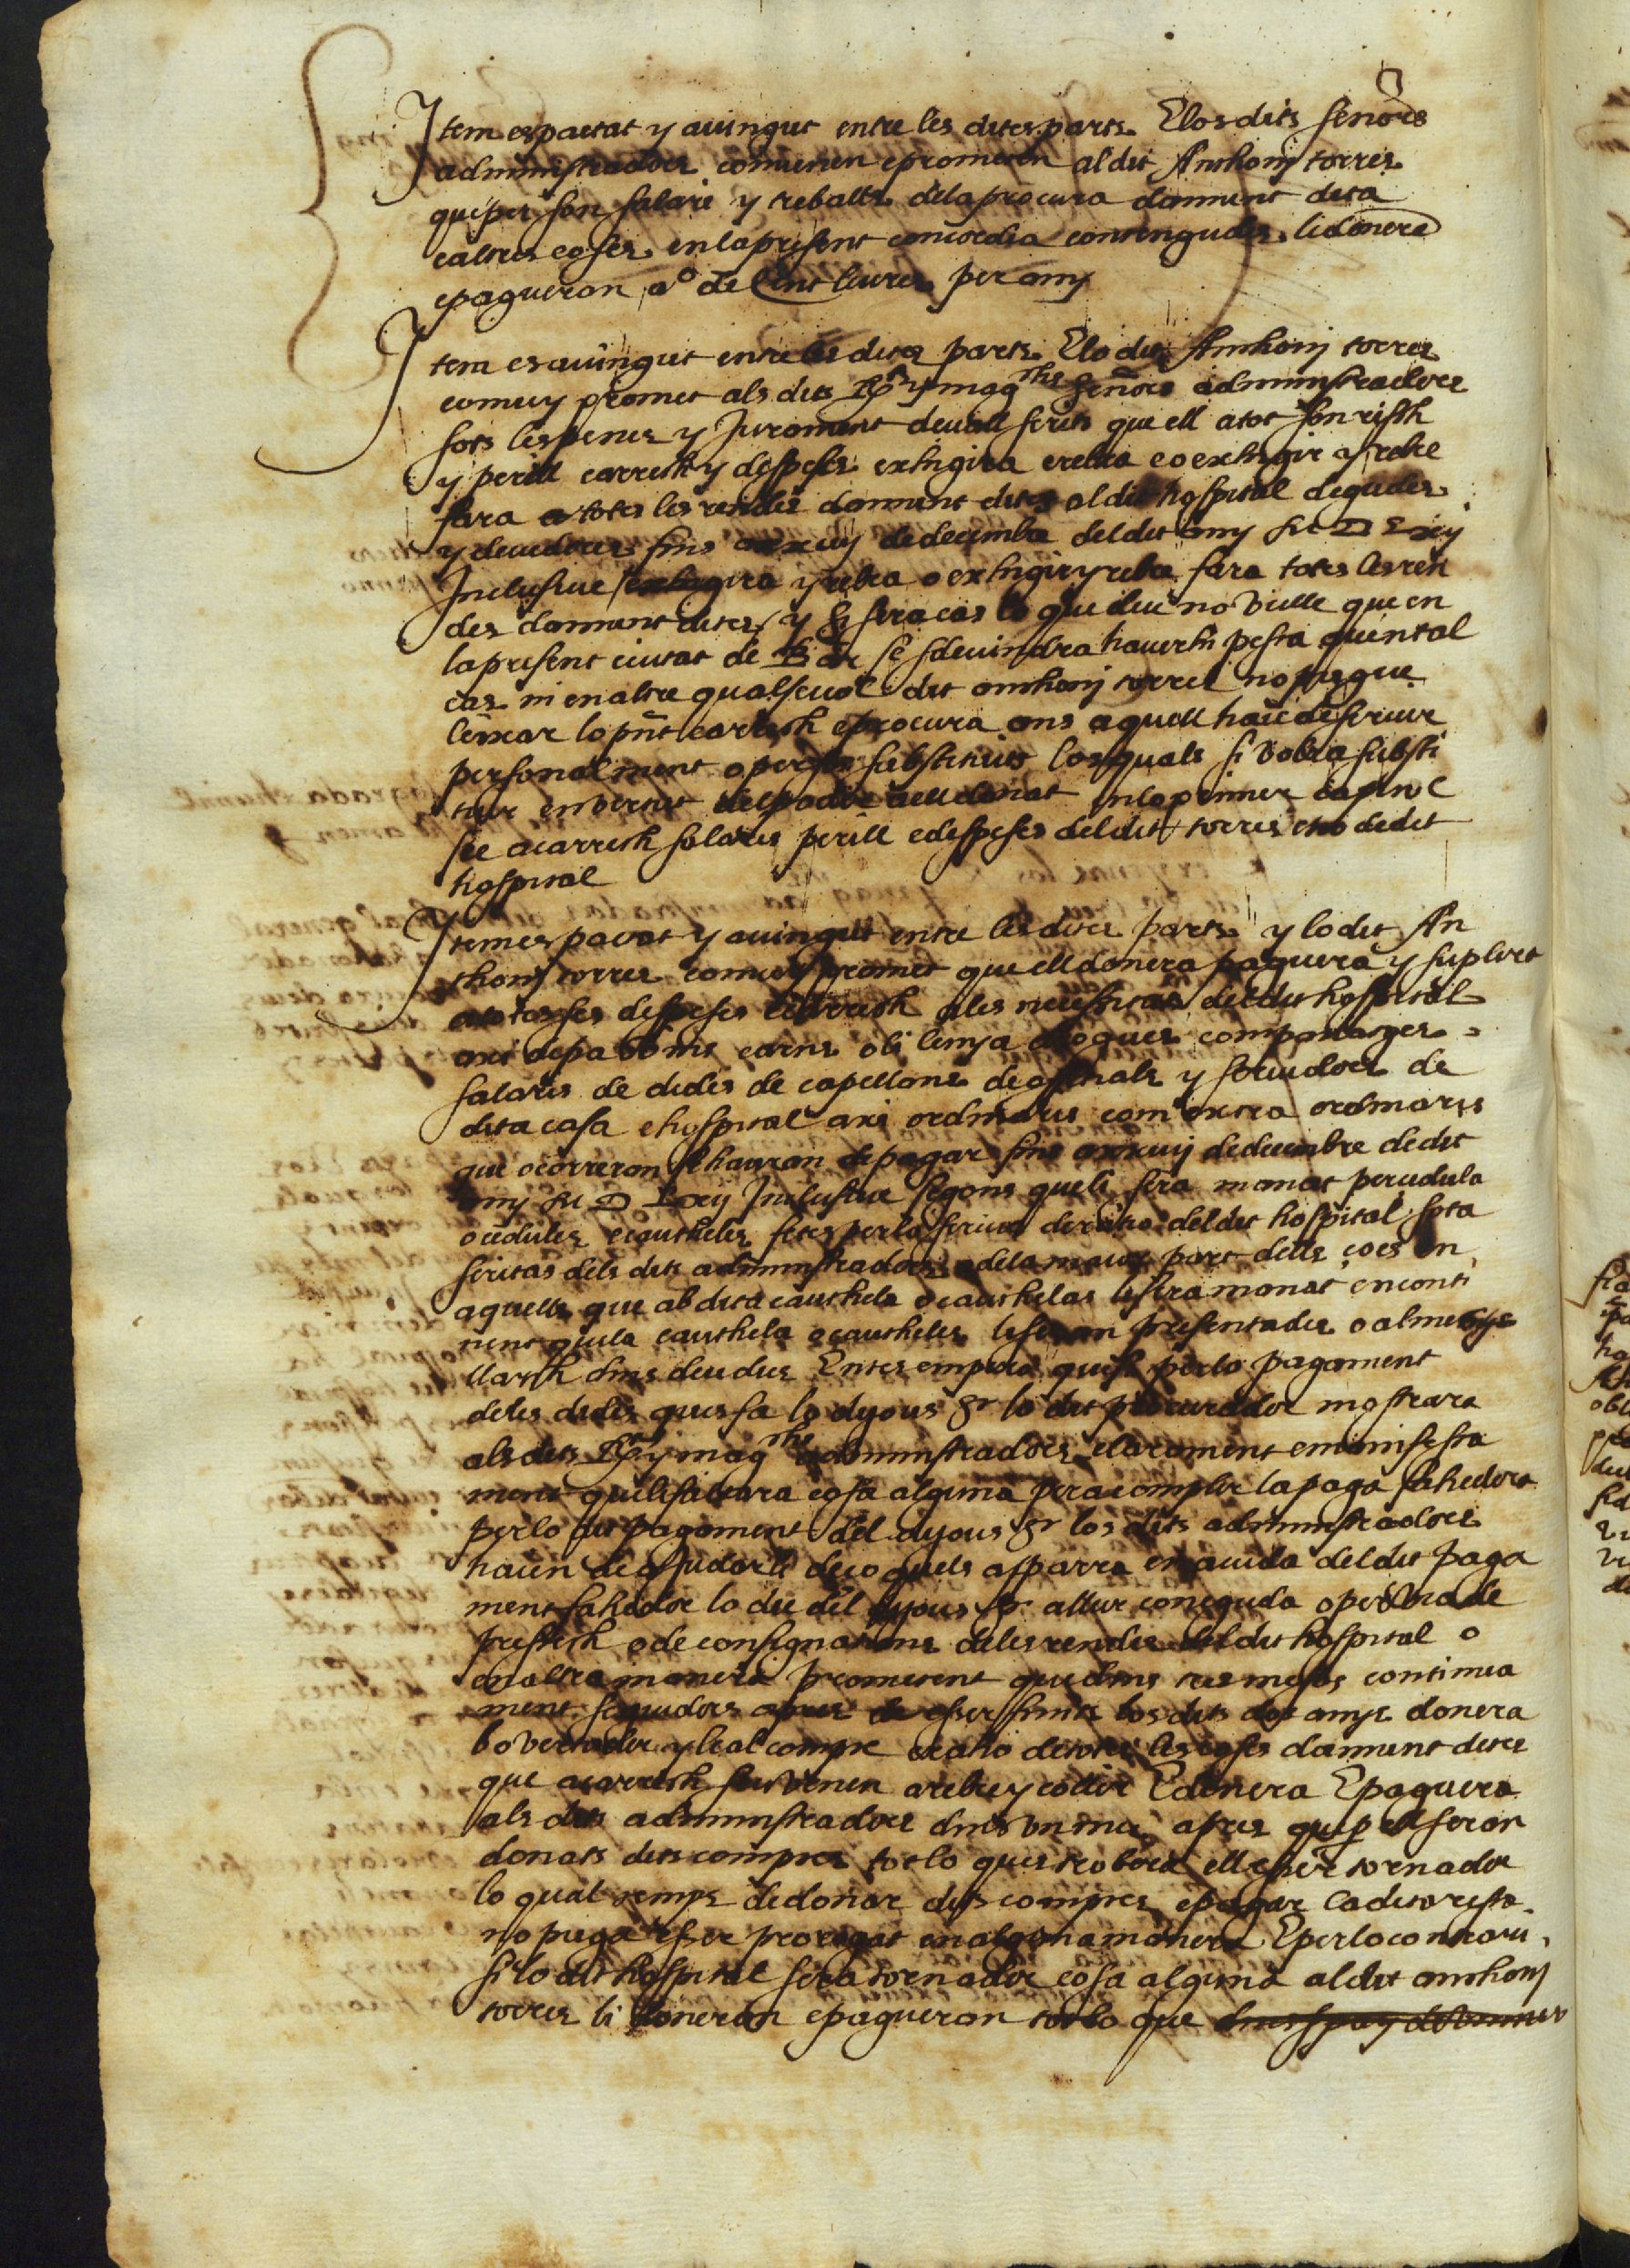 Item es pactat y auingut entre les dites parts. E los dits senors
administradors conuenen e prometen al dit Anthonj torres
que per son salari y treballs dela procura damunt dita
e altres coses en la present concordia contengudes li donera
e pagueran a° de Cent liures per any
Item es auingut entre les dites parts. E lo dit Anthonj torres
conuey promet als dits R^ts y mag^chs señors administradors
sots les penes y Jurament deuall scrits que ell a tot son risch
y perill carrech y despeses exhigira e rebra e o exhigir y rebre
fara a totes les rendes damunt dites al dit hospital degudes
y deuedores fins a xxiiij de decembre del dit any M D Lxij
Inclusiue exhigira y rebra o exhigir y rebre fara totes les ren
des damunt dites y si sera cas lo que deu no vulle que en
la present ciutat de Bar se sdeuindra hauerhi pesta que en tal
cas ni en altre qualseuol dit anthonj torres no pugue
lexar lo pñt carrech e procura ans aquell haie de seruir
personalment o per sos substituts los quals si volra substi
tuir en vertut del poder a ell donat en lo primer capitol
sie a carrech salaris perill e despeses del dit torres e no de dit
hospital
Item es pactat y auingut entre les dites parts y lo dit An
thonj torres conuey promet que ell donera paguera y suplira
a totes ses despeses e carrech a les necessitas del dit hospital
axi de pa vi mes carns oli lenya e logues companatges
salaris de dides de capellans de oficials y seruidors de
dita casa e hospital axi ordinaris com extra ordinaris
que ocorreran se hauran de pagar fins a xxiiij de decembre de dit
any M D Lxij Inclusiue segons que li sera manat per cedula
o cedules e cautheles fetes per lo scriua de ratio del dit hospital sota
scritas dels dits administradors o dela maior part dells ço es en
aquells que ab dita cauthela o cauthelas li sera manat enconti
nent que la cauthela o cautheles li seran presentades o al menys
llarch dins deu dies Entes empero que si per lo pagament
deles dides que es fa lo dijous s^t lo dit procurador mostrara
als dits R^ts y mag^chs administradors clarament e manifesta
ment que li faltara cosa alguna per a complir la paga fahedora
per lo dit pagament del dijous s^t los dits administradors
haien de aiudarli de ço quels apparra en aiuda del dit paga
ment fahedor lo die del dijous s^t a llur coneguda o per via de
prestech o de consignations deles rendes del dit hospital o
en altra manera prometent que dins tres mesos continua
ment seguidors apres de esser finits los dits dos anys donera
bo vertader y leal compte e ratio de totes les coses damunt dites
que a carrech seu venen a rebre y collir E donera E paguera
als dits administradors dins vn mes apres que per ell seran
donats dits comptes tot lo que es trobara ell esser tornador
lo qual temps de donar dits comptes e pagar la dita resta
no puga esser prorogat en alguna manera E per lo contrari
si lo dit hospital sera tornador cosa alguna al dit anthonj
torres li doneran e pagueran tot lo que